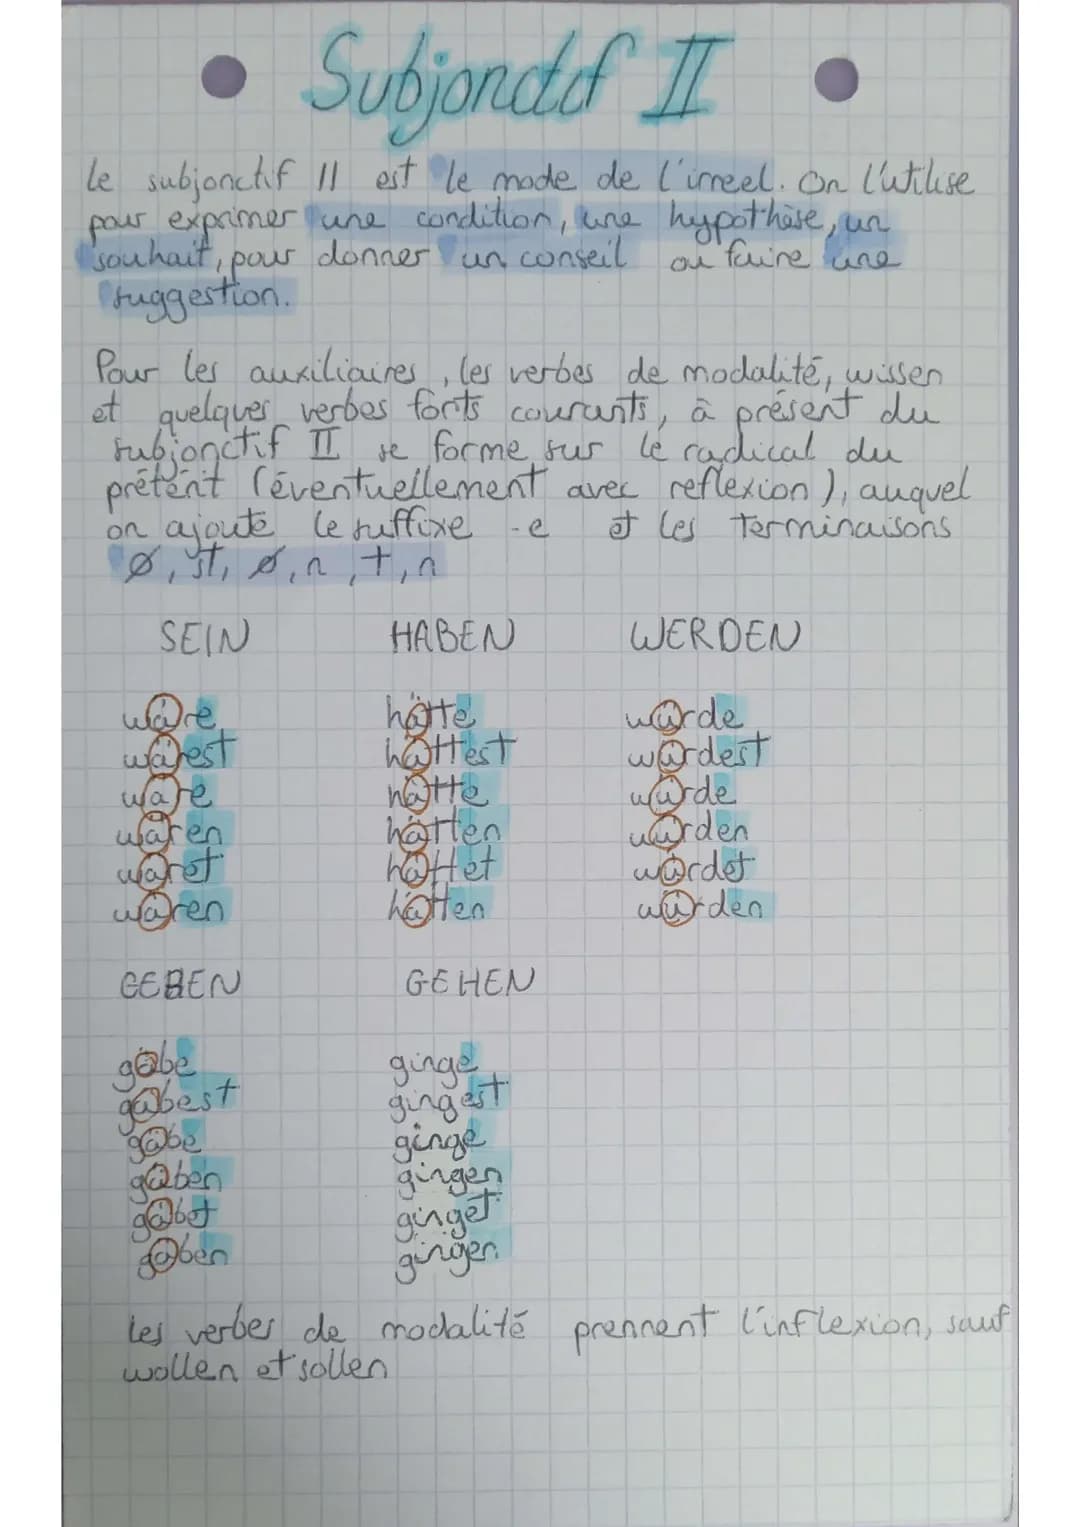 Subjonctif II
Le subjonctif II est le mode de l'irreel. On l'utilise
pour exprimer une condition, une hypothèse, un
souhait, pour donner un conseil ou faire une
suggestion.
Pour les auxiliaires, les verbes de modalité, wissen
et quelques verbes forts courants, à présent du
subjonctif II se forme sur le radical du
prétérit (éventuellement avec reflexion), auquel
on ajoute le suffixe -e et les terminaisons
Ø, st, Ø, n, t, n
SEIN HABEN WERDEN
wäre hätte würde
wärest hättest würdest
wäre hätte würde
wären hätten würden
wäret hättet würdet
wären hätten würden
GEBEN GEHEN
gäbe ginge
gäbest gingest
gäbe ginge
gäben gingen
gäbet ginget
gäben gingen
Les verbes de modalité prennent l'inflexion, sauf
wollen et sollen